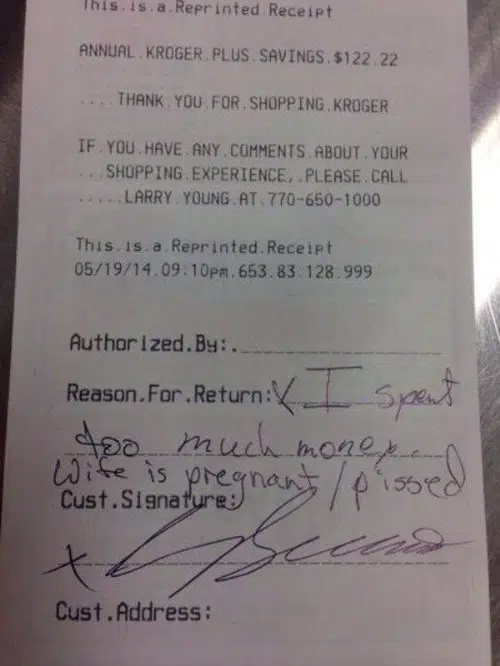 This.is.a.Reprinted.Receipt
ANNUAL.KROGER.PLUS.SAVINGS.$122.22
....THANK.YOU.FOR.SHOPPING.KROGER
IF.YOU.HAVE.ANY.COMMENTS.ABOUT.YOUR
...SHOPPING.EXPERIENCE,.PLEASE.CALL
.....LARRY.YOUNG.AT.770-650-1000
This.is.a.Reprinted.Receipt
05/19/14.09:10pm.653.83.128.999
Authorized.By:.
Reason.For.Return: X I spent
too much money.
Wife is pregnant / pissed
Cust.Signature:
X
Cust.Address: